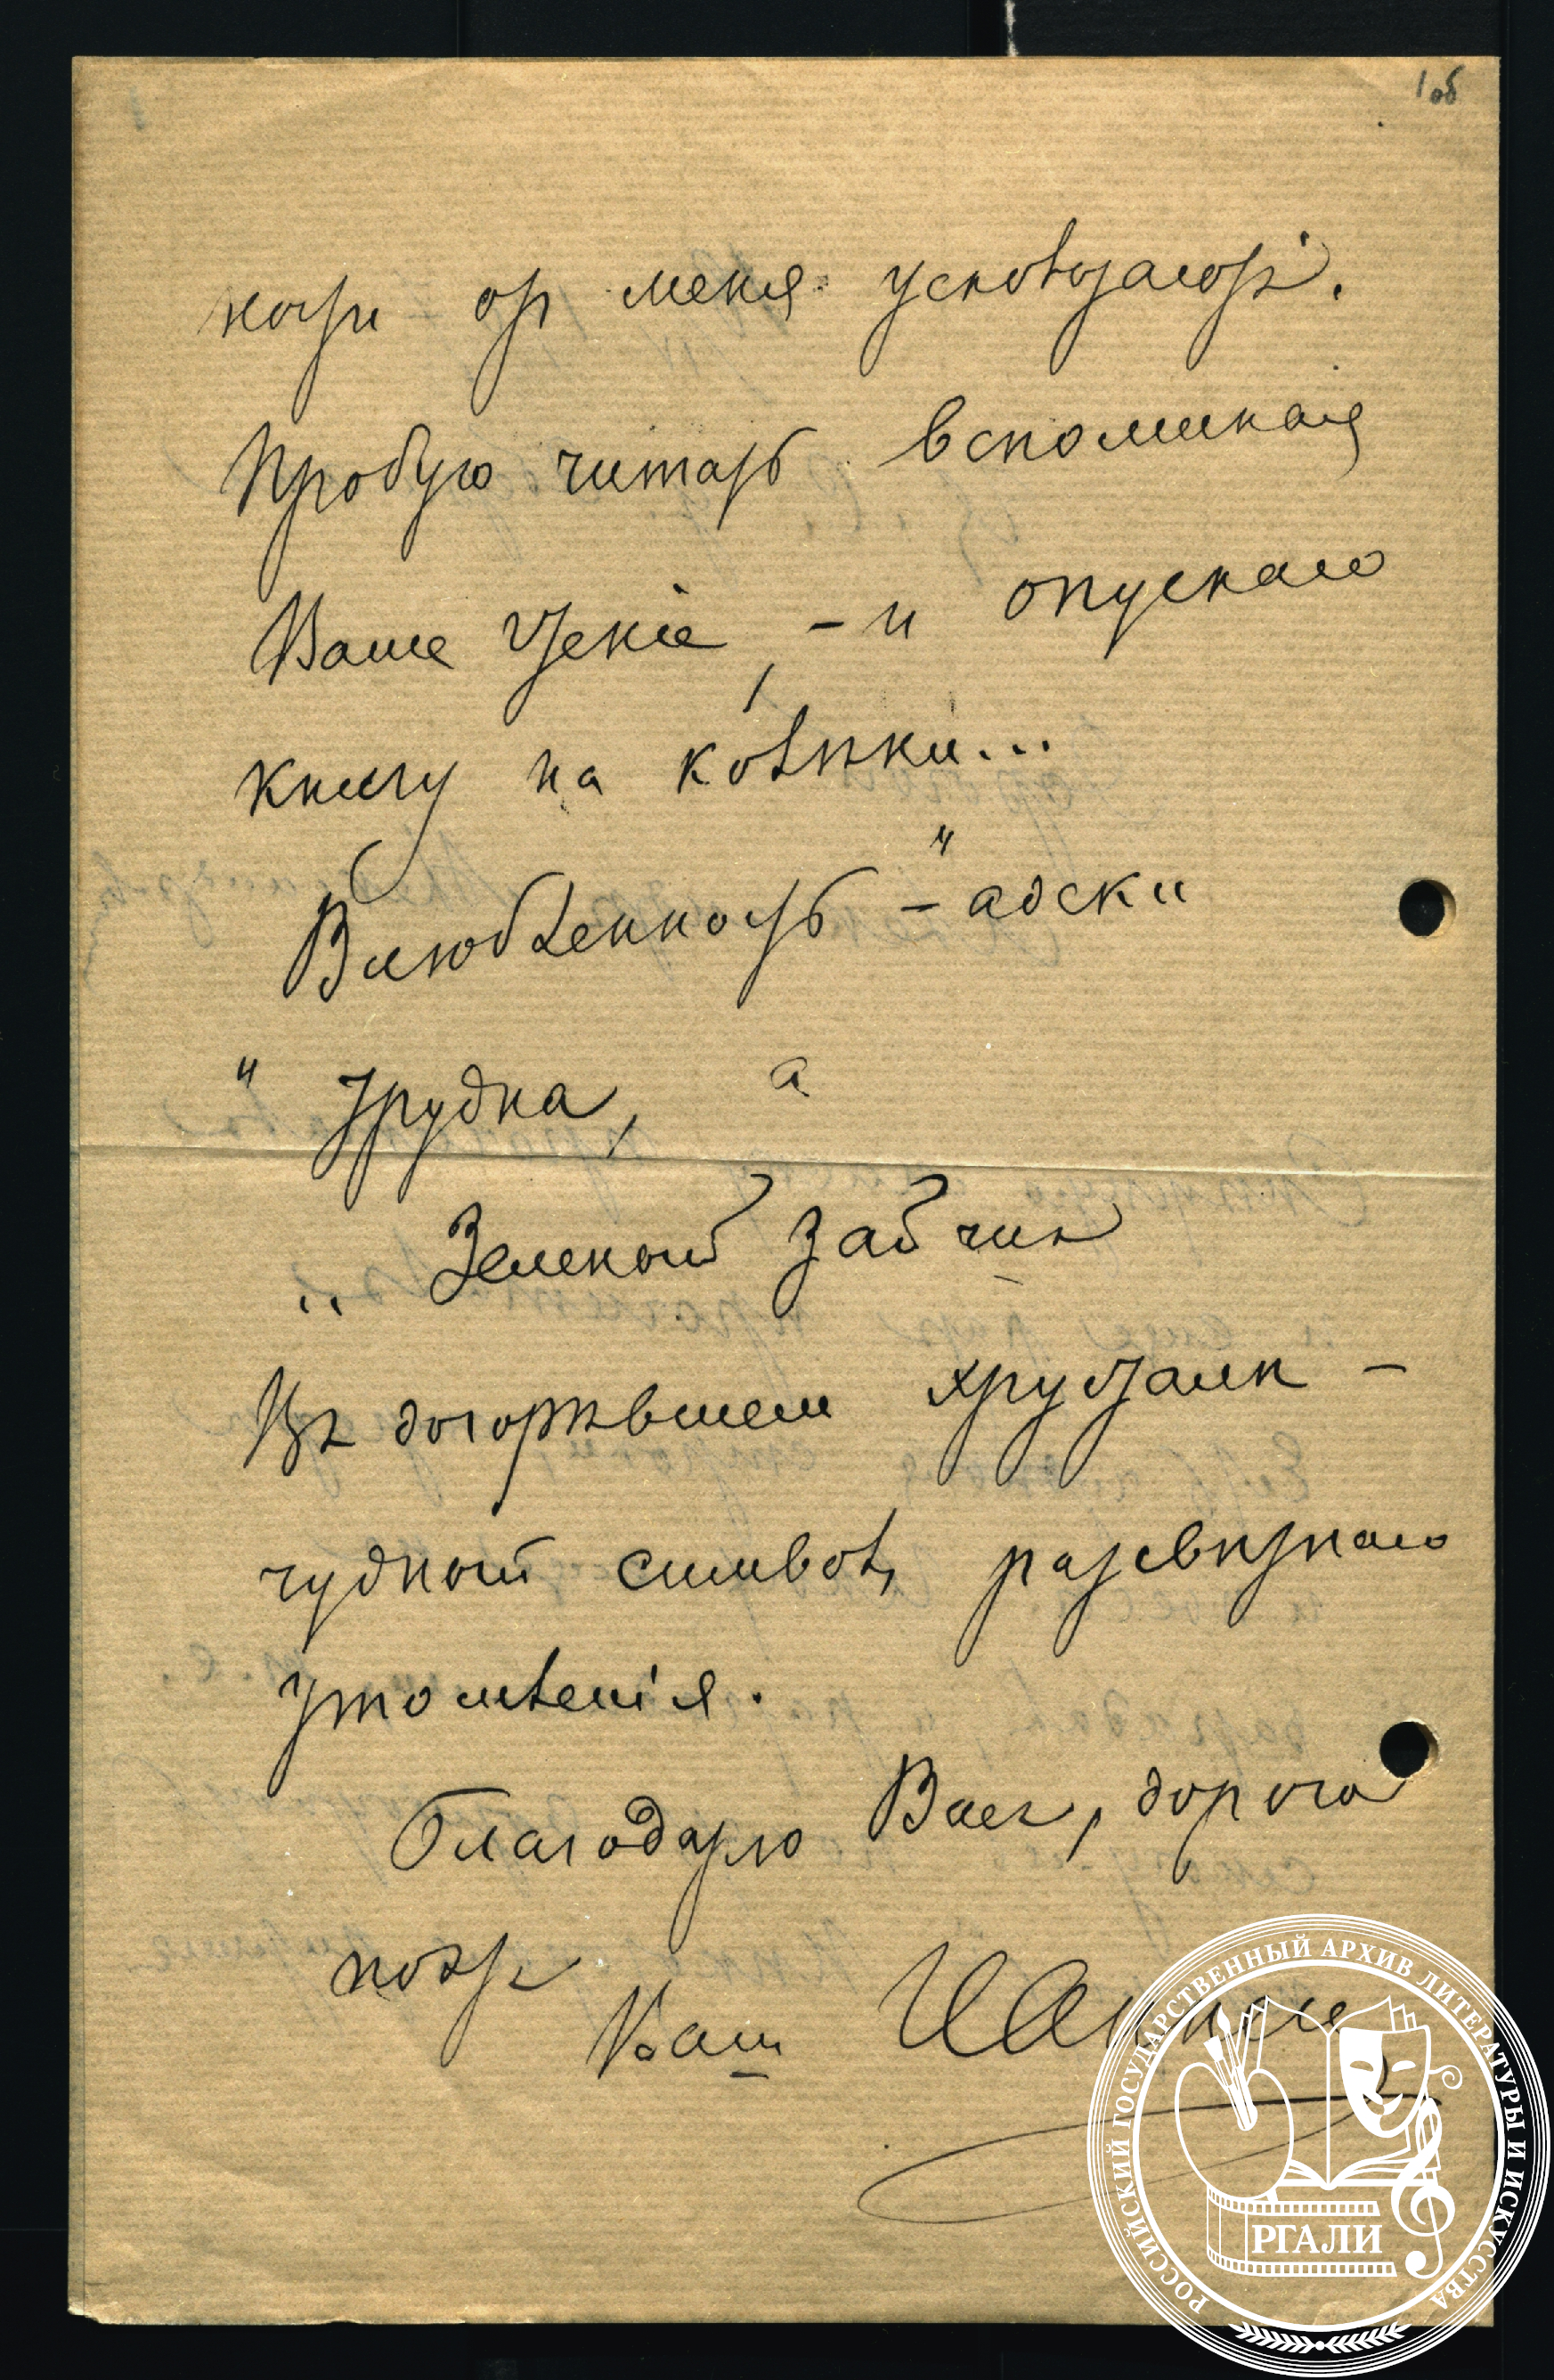 1об
ности от меня ускользают.
Пробую читать вспоминая
Ваше чтенiе, – и опускаю
книгу на колѣнки...
Влюбленность – "адски
" трудна, а
„ Зеленый зайчик
Въ догорѣвшем хрусталѣ –
чудный символ разсвѣтнаго
утомленiя.
Благодарю Васъ, дорогой
поэтъ
Ваш ИАнненс
РОССИЙСКИЙ ГОСУДАРСТВЕННЫЙ АРХИВ ЛИТЕРАТУРЫ И ИСКУССТВА
РГАЛИ